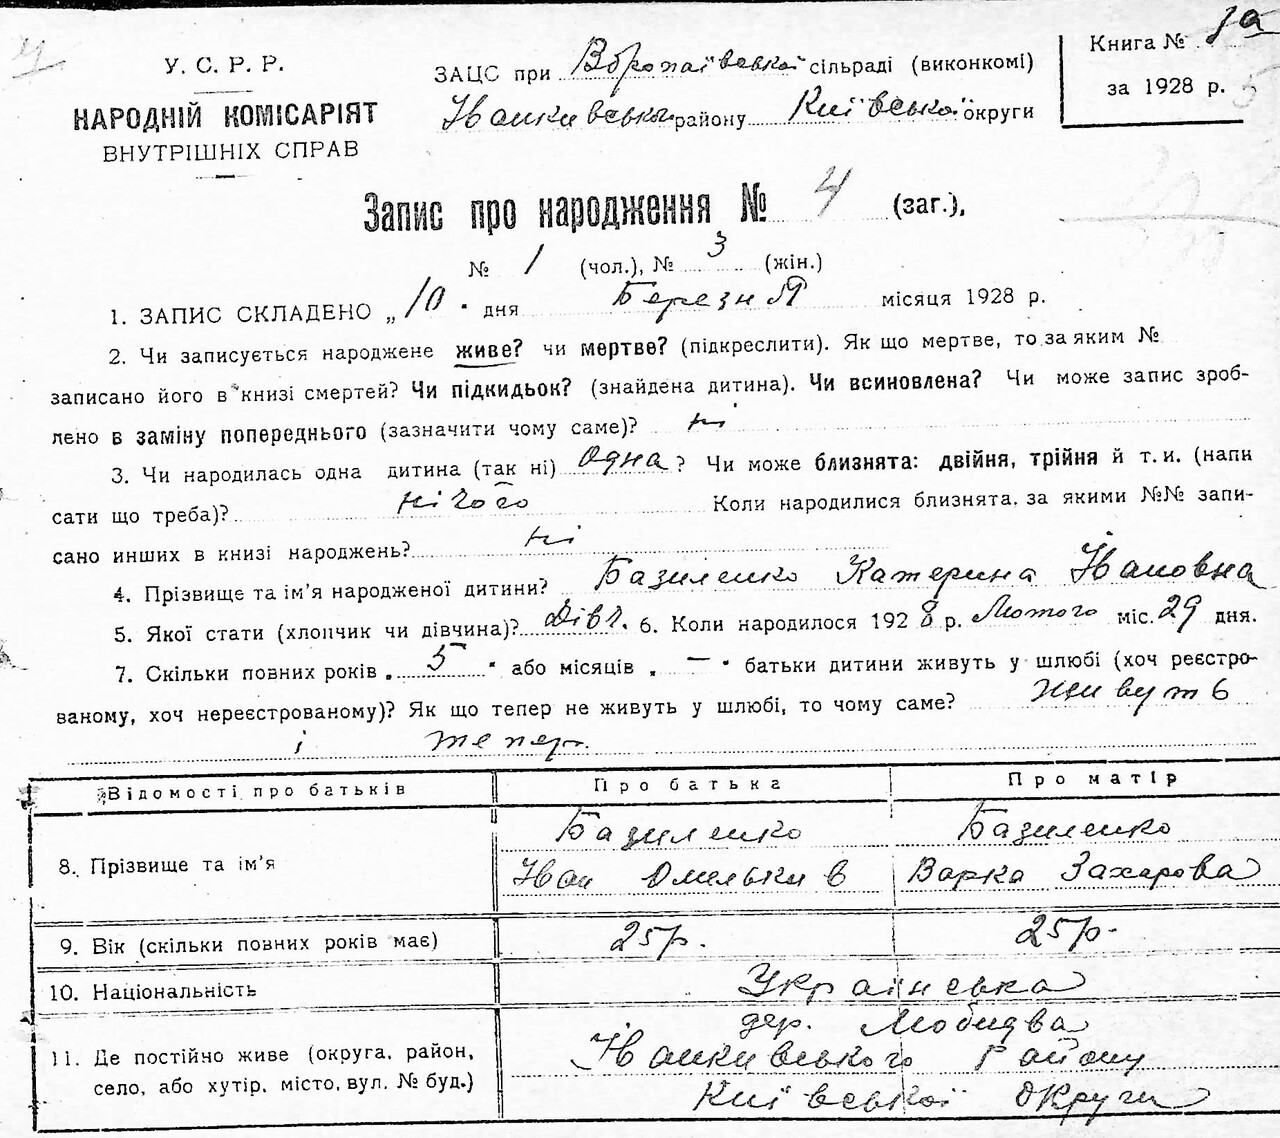 У. С. Р. Р.
НАРОДНІЙ КОМІСАРІЯТ
ВНУТРІШНІХ СПРАВ
ЗАЦС при сільраді (виконкомі)
Іванківського району Київської округи
Книга № 1а
за 1928 р.
Запис про народження № 4 (заг.),
№ 1 (чол.), № 3 (жін.)
1. ЗАПИС СКЛАДЕНО „10" дня Березня місяця 1928 р.
2. Чи записується народжене живе? чи мертве? (підкреслити). Як що мертве, то за яким №
записано його в книзі смертей? Чи підкидьок? (знайдена дитина). Чи всиновлена? Чи може запис зроб-
лено в заміну попереднього (зазначити чому саме)? ні
3. Чи народилась одна дитина (так ні) одна? Чи може близнята: двійня, трійня й т. и. (напи
сати що треба)? нічого Коли народилися близнята, за якими №№ запи-
сано инших в книзі народжень? ні
4. Прізвище та ім'я народженої дитини? Базиленко Катерина Івановна
5. Якої стати (хлопчик чи дівчина)? дівч. 6. Коли народилося 1928 р. Лютого міс. 29 дня.
7. Скільки повних років „5" або місяців „—" батьки дитини живуть у шлюбі (хоч реєстро-
ваному, хоч нереєстрованому)? Як що тепер не живуть у шлюбі, то чому саме? живуть
і тепер.
Відомості про батьків Про батька Про матір
8. Прізвище та ім'я Базиленко Базиленко
Іван Омельків Варка Захарова
9. Вік (скільки повних років має) 25р. 25р.
10. Національність Українська
дер.
11. Де постійно живе (округа, район, Іванківського району
село, або хутір, місто, вул. № буд.) Київської округи